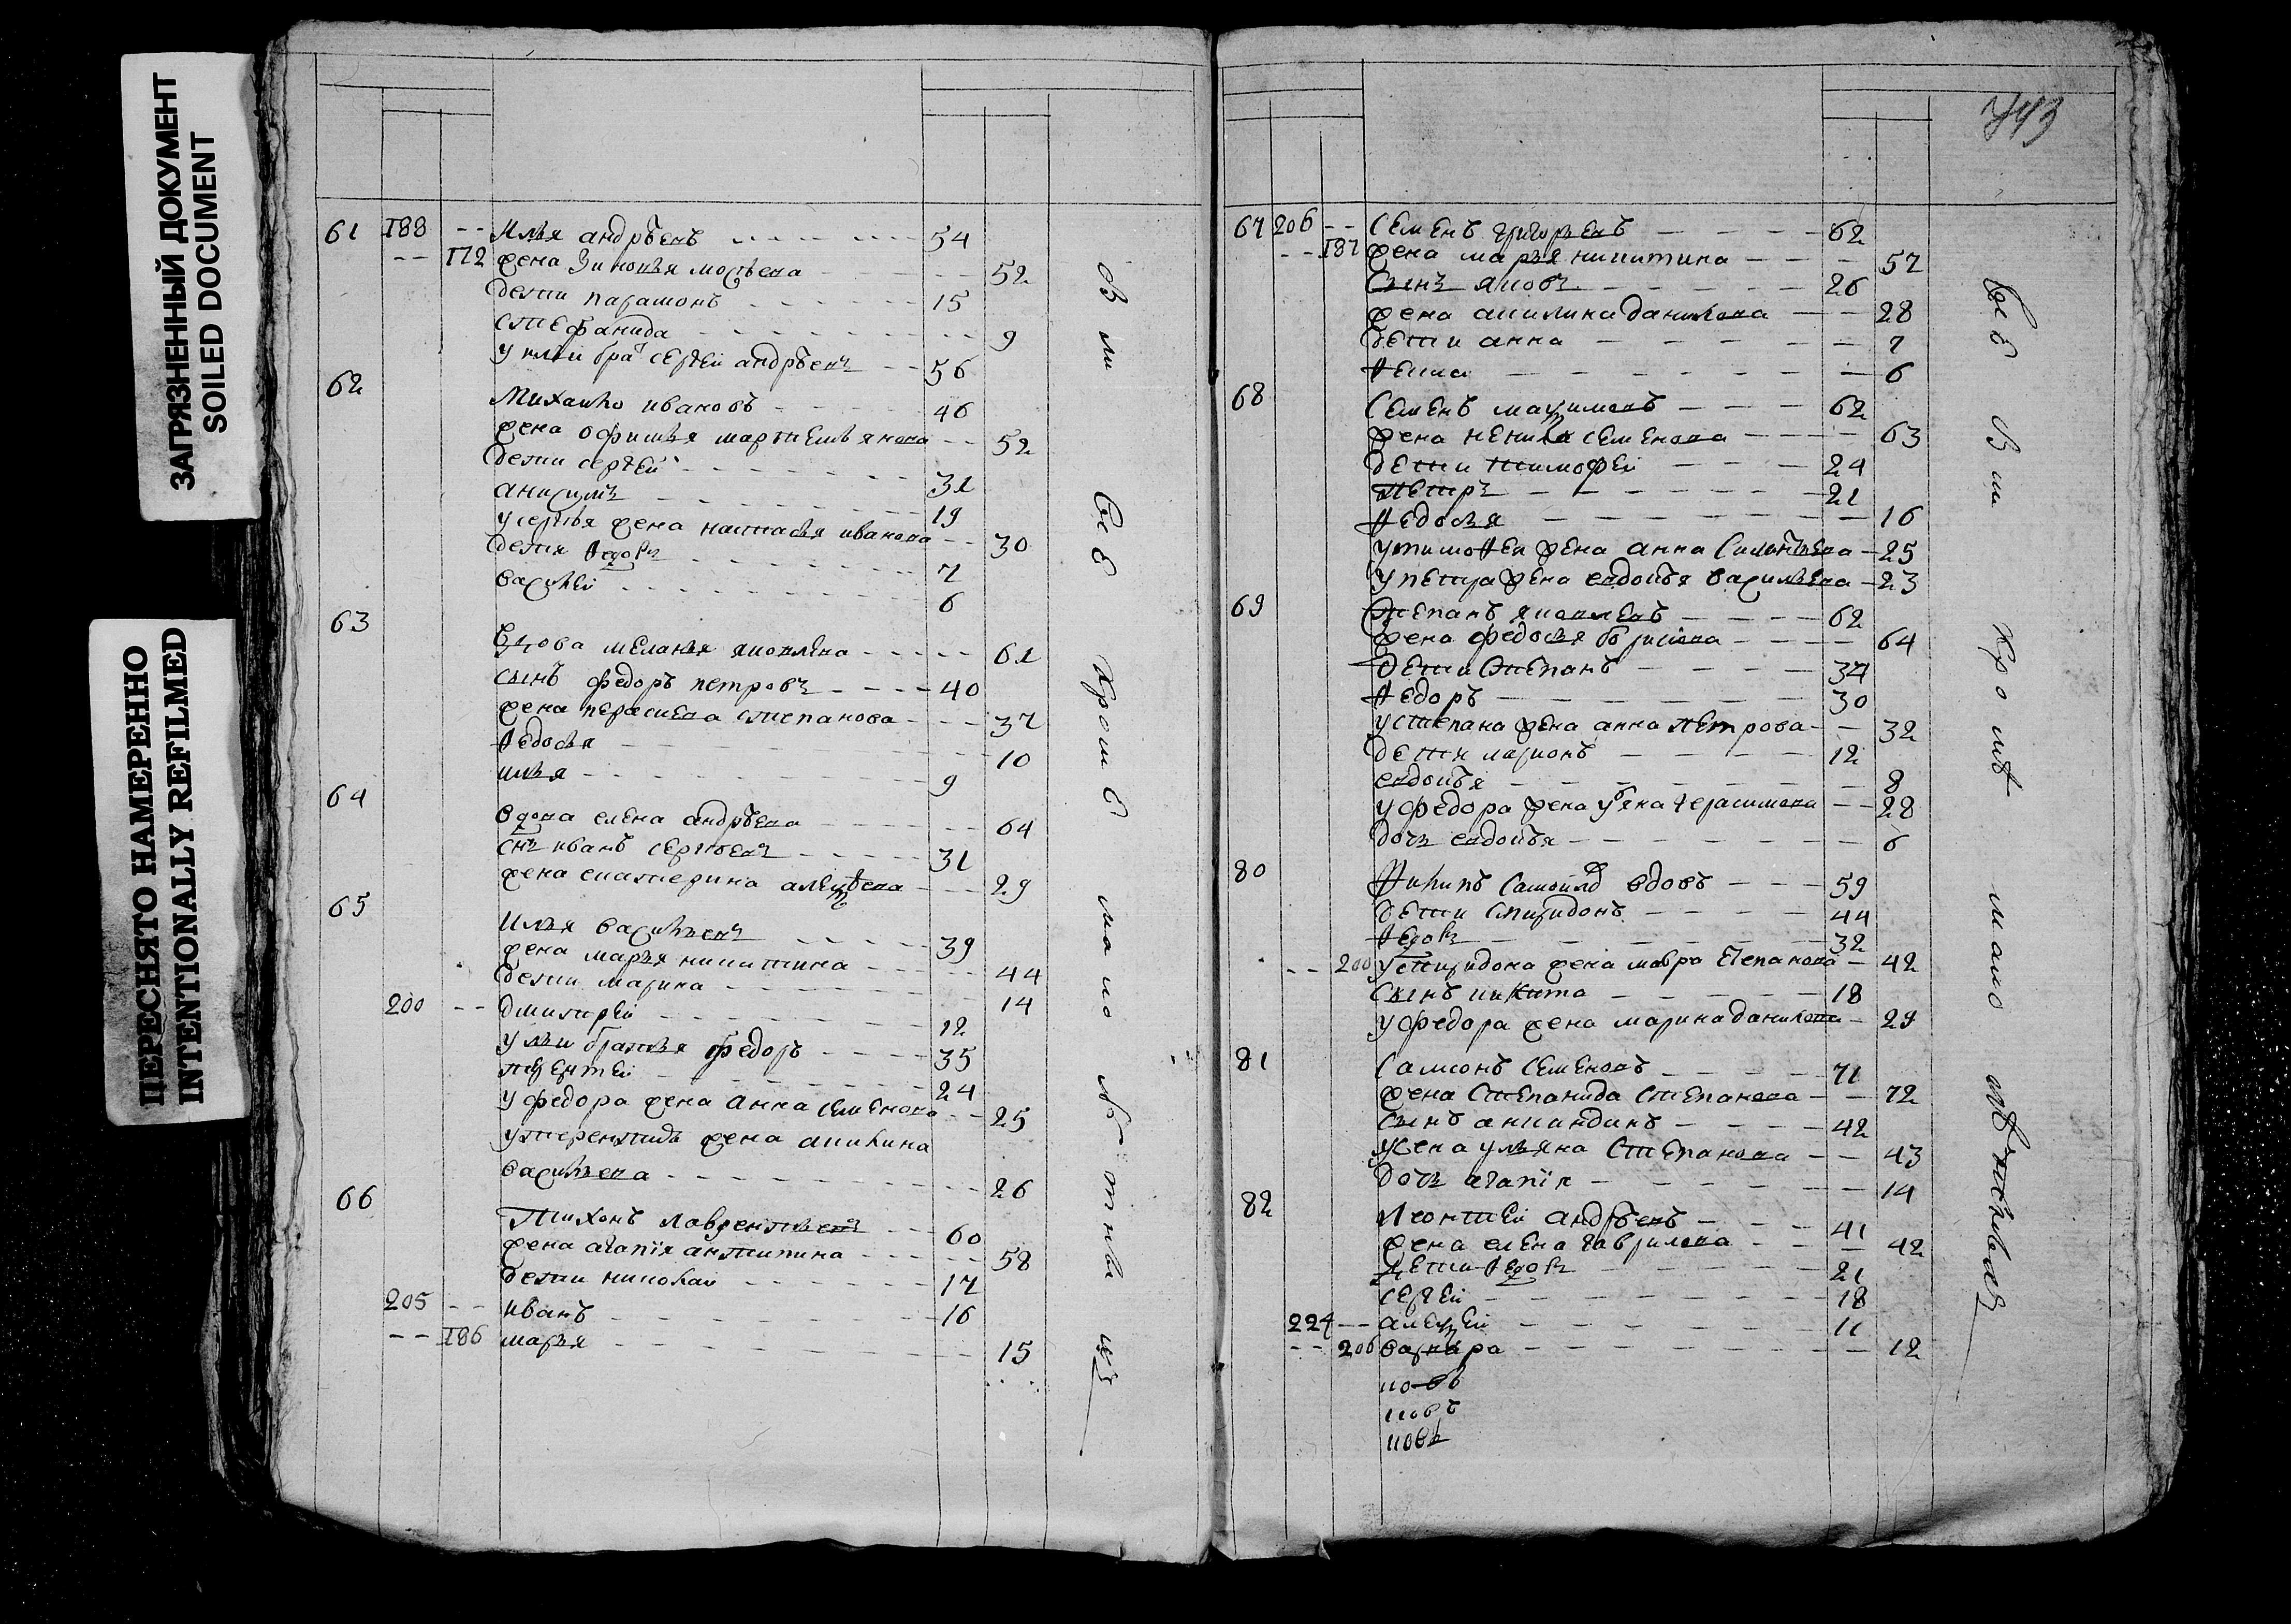 ЗАГРЯЗНЕННЫЙ ДОКУМЕНТ
SOILED DOCUMENT
ПЕРЕСНЯТО НАМЕРЕННО
INTENTIONALLY REFILMED
61 188 -- Илья андрѣевъ 54
-- 172 жена Зиновья 52
дети парамонъ 15
стефанида 9
у ильи бра сергей андрѣевъ 56
62
михайло ивановъ 46
жена офимья мартемьянова 52
дети сергей 31
анисимъ 19
у сергея жена настасья иванова 30
дети федоръ 7
василей 6
63
вдова меланья яковлева 61
сынъ федоръ петровъ 40
жена парасковья степанова 37
федосья 10
илья 9
64
вдова елена андрѣева 64
снъ иванъ сергѣевъ 31
жена екатерина алексѣева 29
65
Илья васильевъ 39
жена марья никитина 44
дети марина 14
200 -- дмитрей 12
у ильи братья федоръ 35
терентей 24
у федора жена анна семенова 25
у терентия жена акилина
васильева 26
66
Тихонъ лаврентьевъ 60
жена агапїя антипина 58
дети николай 17
205 -- иванъ 16
-- 186 марья 15
В ш все кроме
743
67 206 -- Семенъ григорьевъ 62
-- 187 жена марья никитина 57
Сынъ яковъ 26
жена акилина данилова 28
дети анна 7
фекла 6
68
Семенъ максимовъ 62
жена ненила семенова 63
дети тимофей 24
петръ 21
федосья 16
у тимофея жена анна 25
у петра жена евдокья васильева 23
69
Степанъ яковлевъ 62
жена федосья борисова 64
дети степанъ 34
федоръ 30
у степана жена анна петрова 32
дети ларионъ 12
евдокья 8
у федора жена ульяна герасимова 28
дочь евдокья 6
80
Филипъ самойлов вдовъ 59
дети спиридонъ 44
федоръ 32
-- 200 у спиридона жена мавра степанова 42
сынъ никита 18
у федора жена марина данилова 29
81
Самсонъ семеновъ 71
жена степанида степанова 72
сынъ акиндинъ 42
жена ульяна степанова 43
дочь агапїя 14
82
Леонтей андрѣевъ 41
жена елена гаврилова 42
дети федоръ 21
сергей 18
224 -- алексей 11
-- 206 варвара 12